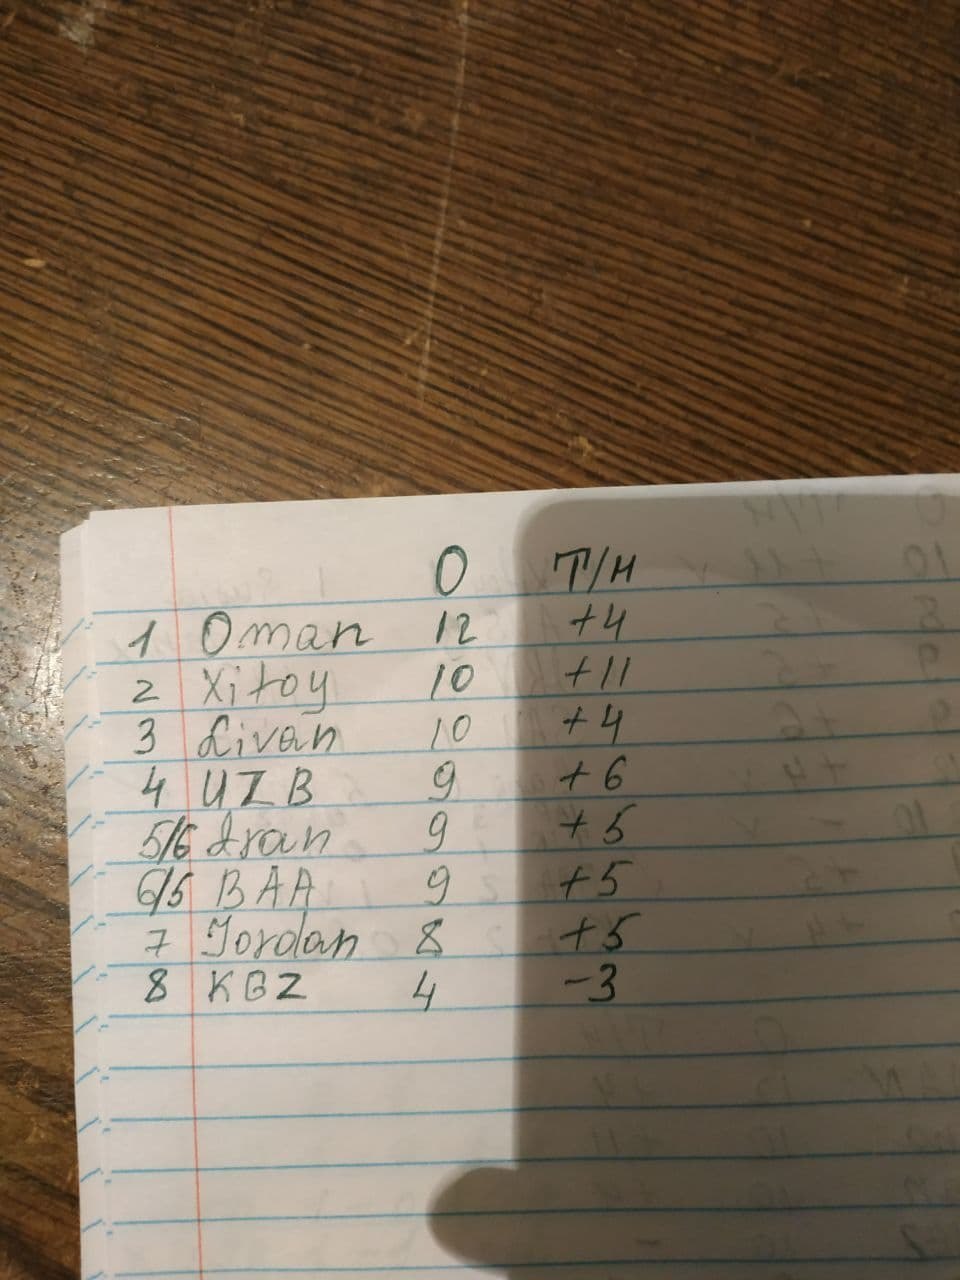 O T/H
1 Oman 12 +4
2 Xitoy 10 +11
3 Livan 10 +4
4 UZB 9 +6
5/6 Iran 9 +5
6/5 BAA 9 +5
7 Jordan 8 +5
8 KGZ 4 -3